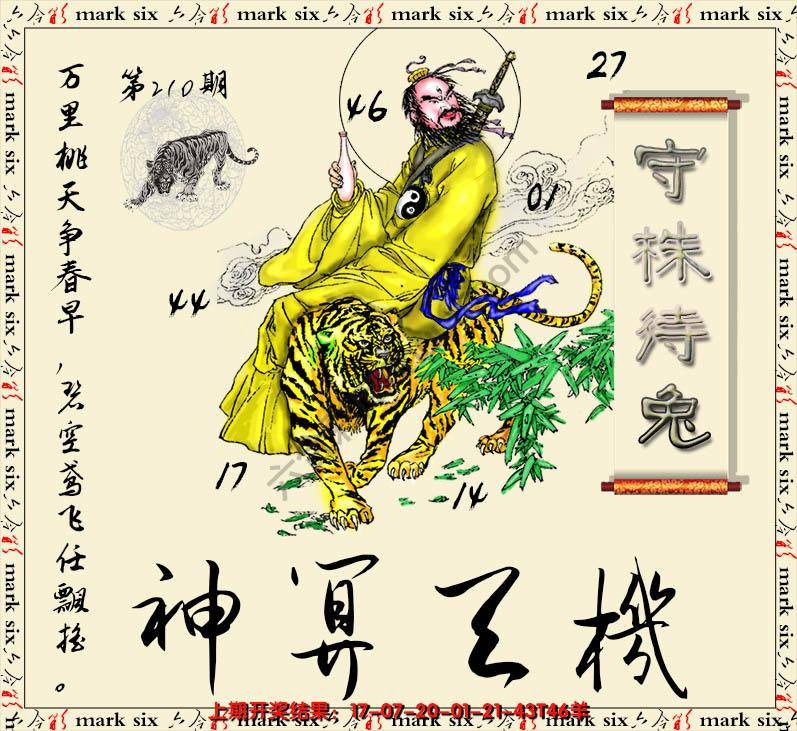 第210期
万里桃天争春早，碧空鸢飞任飘摇。
27
46
01
44
17
14
守株待兔
神算天機
上期开奖结果：17-07-20-01-21-43T46羊
六合彩 mark six